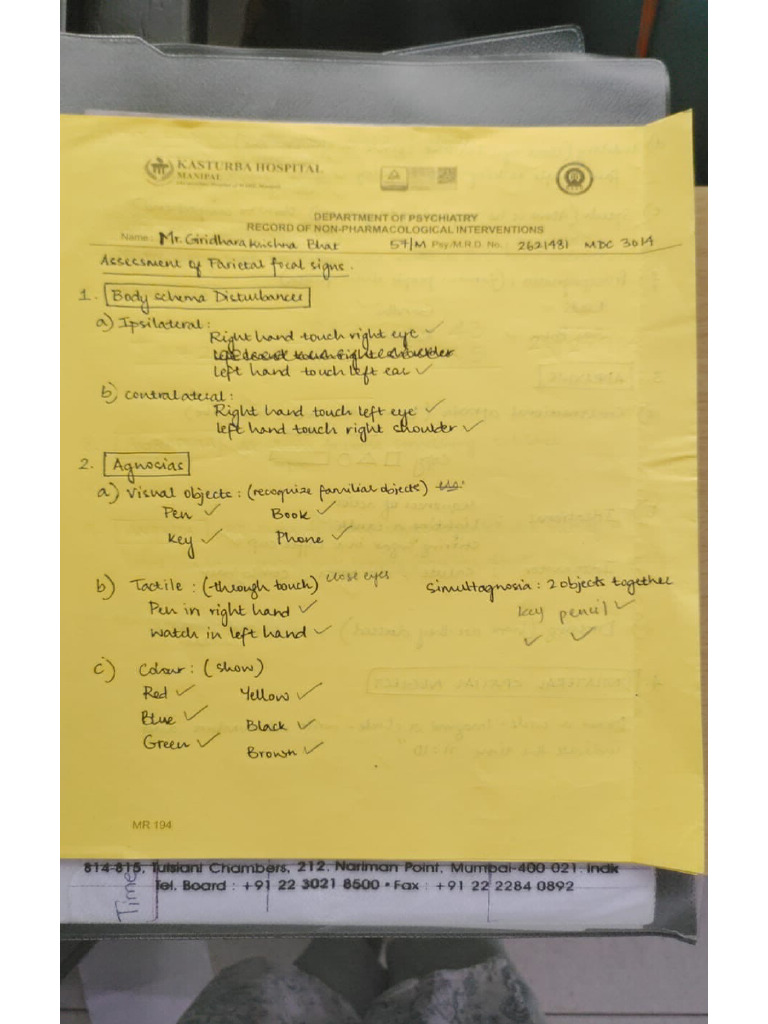 KASTURBA HOSPITAL
MANIPAL
DEPARTMENT OF PSYCHIATRY
RECORD OF NON-PHARMACOLOGICAL INTERVENTIONS
Name: Mr. Giridhara Krishna Bhat 57/M Psy/M.R.D. No.: 2621481 MDC 3014
Assessment of Parietal focal signs.
1. Body schema Disturbances
a) Ipsilateral:
Right hand touch right eye ✓
left hand touch right shoulder
left hand touch left ear ✓
b) contralateral:
Right hand touch left eye ✓
left hand touch right shoulder ✓
2. Agnosias
a) Visual objects: (recognize familial objects)
Pen ✓ Book ✓
Key ✓ Phone ✓
b) Tactile: (-through touch) close eyes Simultagnosia: 2 objects together
Pen in right hand ✓ key pencil ✓
watch in left hand ✓ ✓ ✓
c) Colour: (show)
Red ✓ Yellow ✓
Blue ✓ Black ✓
Green ✓ Brown ✓
MR 194
814-815, Tulsiani Chambers, 212, Nariman Point, Mumbai-400 021. India
Tel. Board : +91 22 3021 8500 • Fax : +91 22 2284 0892
Time